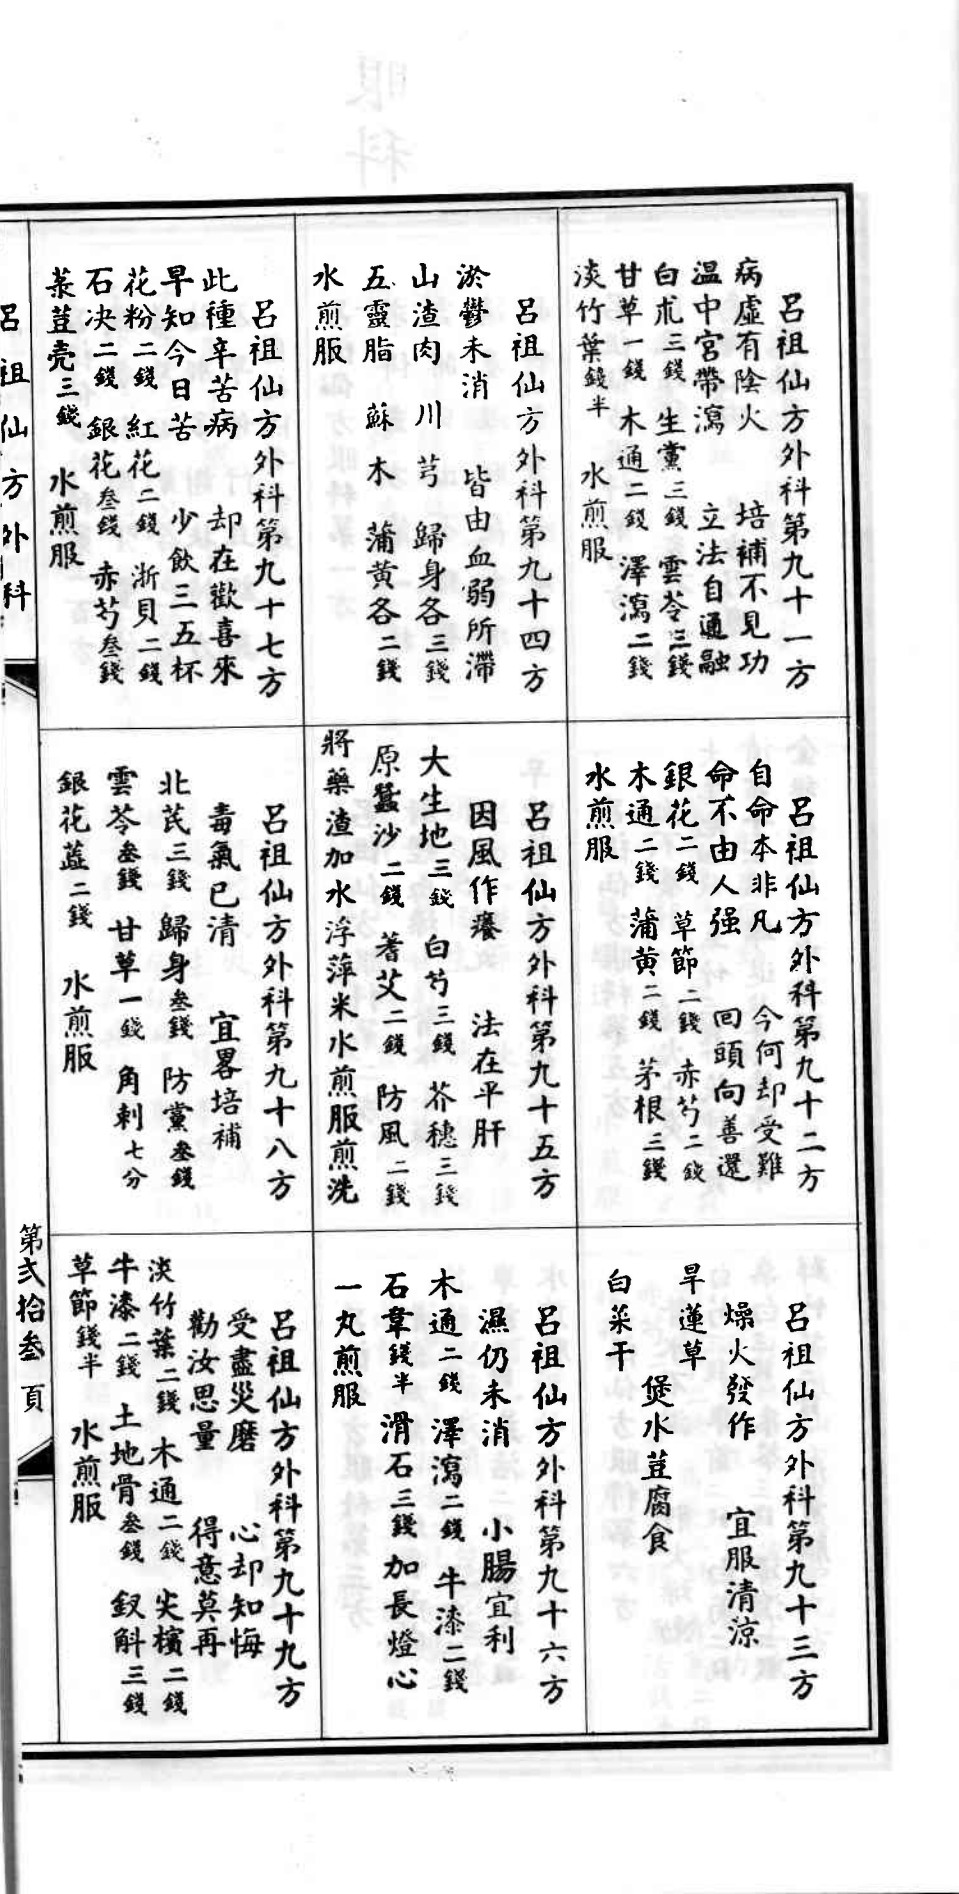 呂祖仙方外科第九十一方
病虛有陰火 培補不見功
溫中宮帶瀉 立法自通融
白朮三錢 生黨三錢 雲苓三錢
甘草一錢 木通二錢 澤瀉二錢
淡竹葉錢半 水煎服
呂祖仙方外科第九十二方
自命本非凡 今何却受難
命不由人强 回頭向善還
銀花二錢 草節二錢 赤芍二錢
木通二錢 蒲黃二錢 茅根三錢
水煎服
呂祖仙方外科第九十三方
燥火發作 宜服清涼
旱蓮草 煲水荳腐食
白菜干
呂祖仙方外科第九十四方
淤鬱未消 皆由血弱所滯
山渣肉 川芎 歸身各三錢
五靈脂 蘇木 蒲黃各二錢
水煎服
呂祖仙方外科第九十五方
因風作癢 法在平肝
大生地三錢 白芍三錢 芥穗三錢
原蠶沙二錢 蓍艾二錢 防風二錢
將藥渣加水浮萍米水煎服煎洗
呂祖仙方外科第九十六方
濕仍未消 小腸宜利
木通二錢 澤瀉二錢 牛漆二錢
石韋錢半 滑石三錢 加長燈心
一丸煎服
呂祖仙方外科第九十七方
此種辛苦病 却在歡喜來
早知今日苦 少飲三五杯
花粉二錢 紅花二錢 浙貝二錢
石决二錢 銀花叁錢 赤芍叁錢
菉荳壳三錢 水煎服
呂祖仙方外科第九十八方
毒氣已清 宜畧培補
北芪三錢 歸身叁錢 防黨叁錢
雲苓叁錢 甘草一錢 角刺七分
銀花蕋二錢 水煎服
呂祖仙方外科第九十九方
受盡災磨 心却知悔
勸汝思量 得意莫再
淡竹葉二錢 木通二錢 尖檳二錢
牛漆二錢 土地骨叁錢 釵斛三錢
草節錢半 水煎服
呂祖仙方外科
第弍拾叁頁